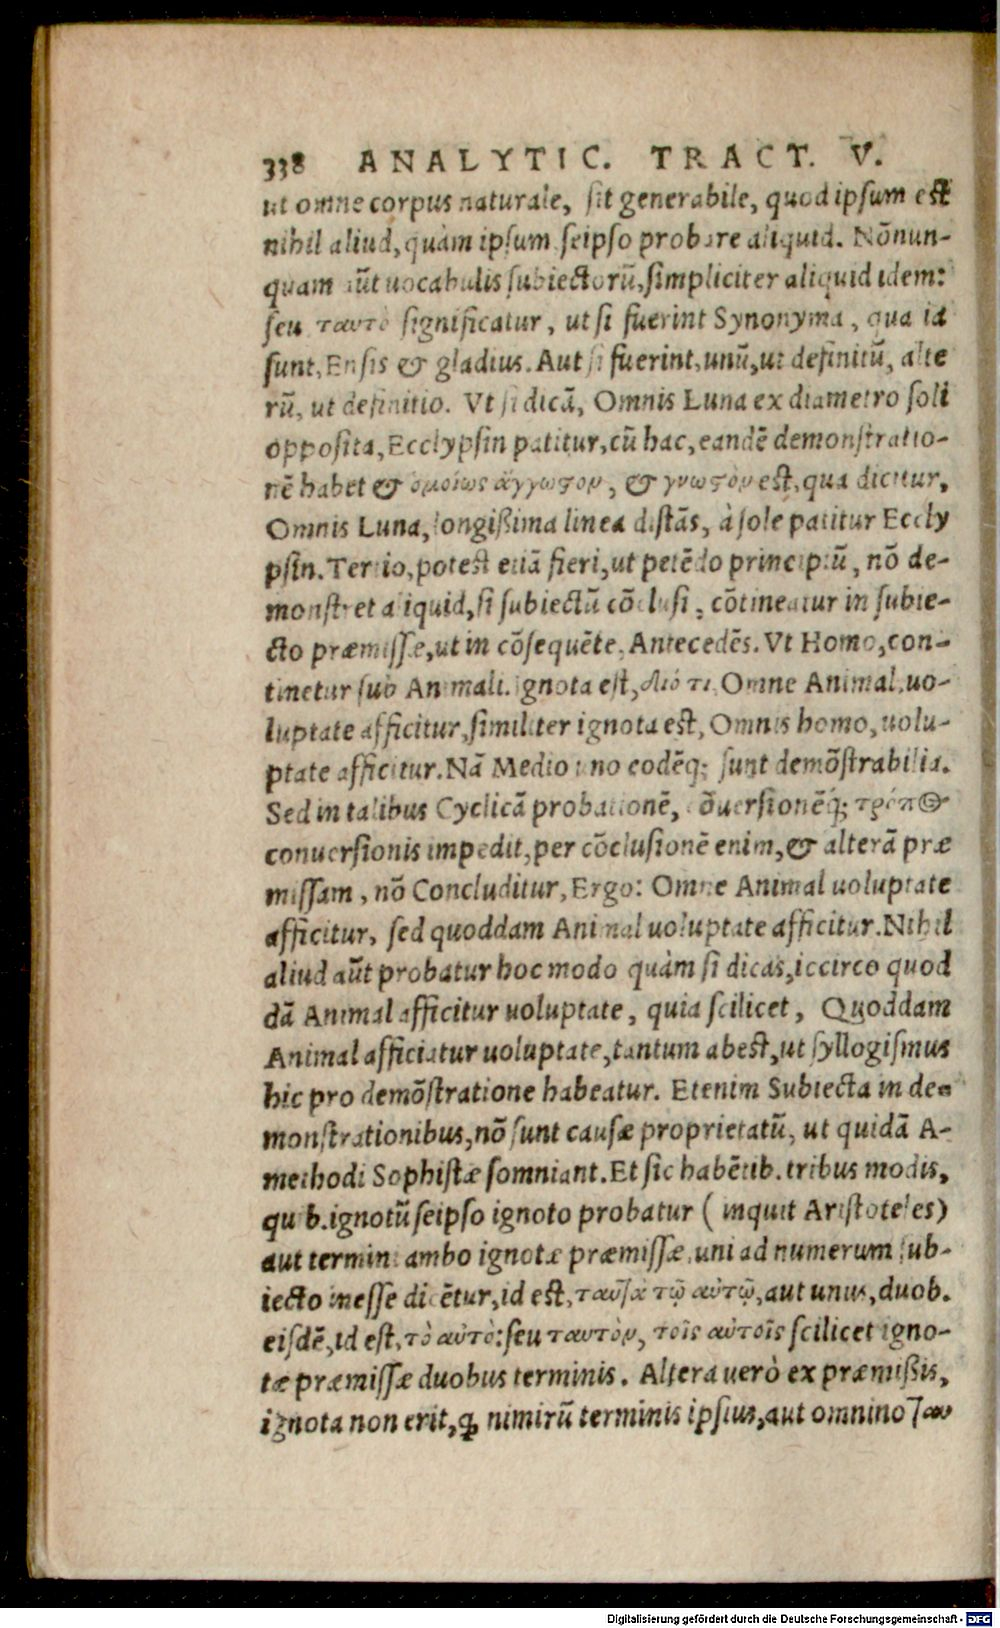 338 ANALYTIC. TRACT. V.
ut omne corpus naturale, ſit generabile, quod ipſum eſt
nihil aliud, quàm ipſum ſeipſo probare aliquid. Nõnun-
quam aũt uocabulis ſubiectorũ, ſimpliciter aliquid idem:
ſeu ταυτὸ ſignificatur, ut ſi fuerint Synonyma, qua id
ſunt, Enſis & gladius. Aut ſi fuerint, unũ, ut definitũ, alte
rũ, ut definitio. Vt ſi dicã, Omnis Luna ex diametro ſoli
oppoſita, Ecclypſin patitur, cũ hac, eandẽ demonſtratio-
nẽ habet & ὁμοίως ἄγγωστον, & γνωστὸν eſt, qua dicitur,
Omnis Luna, longißima linea diſtãs, à ſole patitur Eccly
pſin. Tertio, poteſt etiã fieri, ut petẽdo principiũ, nõ de-
monſtret aliquid, ſi ſubiectũ cõcluſi, cõtineatur in ſubie-
cto præmiſſæ, ut in cõſequẽte, Antecedẽs. Vt Homo, con-
tinetur ſub Animali. ignota eſt, διό τι Omne Animal uo-
luptate afficitur, ſimiliter ignota eſt, Omnis homo, uolu-
ptate afficitur. Nã Medio uno eodẽq; ſunt demõſtrabilia.
Sed in talibus Cyclicã probationẽ, cõuerſionẽq́; τρόπος
conuerſionis impedit, per cõcluſionẽ enim, & alterã præ
miſſam, nõ Concluditur, Ergo: Omne Animal uoluptate
afficitur, ſed quoddam Animal uoluptate afficitur. Nihil
aliud aũt probatur hoc modo quàm ſi dicas, iccirco quod
dã Animal afficitur uoluptate, quia ſcilicet, Quoddam
Animal afficiatur uoluptate, tantum abeſt, ut ſyllogiſmus
hic pro demõſtratione habeatur. Etenim Subiecta in de-
monſtrationibus, nõ ſunt cauſæ proprietatũ, ut quidã A-
methodi Sophiſtæ ſomniant. Et ſic habẽtib. tribus modis,
quib. ignotũ ſeipſo ignoto probatur ( inquit Ariſtoteles)
aut termini ambo ignotæ præmiſſæ, uni ad numerum ſub-
iecto ineſſe dicẽtur, id eſt, ταῦτα τῷ αὐτῷ, aut unus, duob.
eiſdẽ, id eſt, τὸ αὐτὸ: ſeu ταυτὸν, τοῖς αὐτοῖς ſcilicet igno-
tæ præmiſſæ duobus terminis. Altera uerò ex præmißis,
ignota non erit, ꝙ nimirũ terminis ipſius, aut omnino ταυ
Digitalisierung gefördert durch die Deutsche Forschungsgemeinschaft - DFG